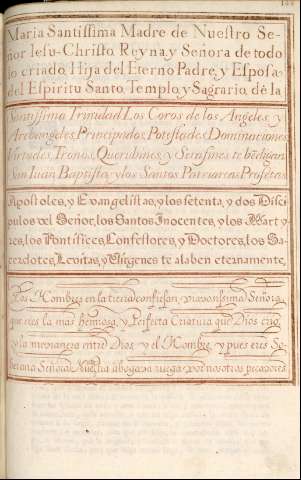 Maria Santissima Madre de Nuestro Se-
ñor Iesu-Christo Reyna, y Señora de todo
lo criado, Hija del Eterno Padre, y Esposa
del Espiritu Santo, Templo, y Sagrario de la
Santissima Trinidad. Los Coros de los Angeles, y
Archangeles, Principados, Potestades, Dominaciones,
Virtudes, Tronos, Querubines, y Serafines te bēdigan.
San Iuan Baptista, y los Santos Patriarcas, Profetas
Apostoles, y Evangelistas, y los setenta, y dos Disci-
pulos del Señor, los Santos Inocentes, y los Marty-
res, los Pontifices, Confessores, y Doctores, los Sa-
cerdotes, Levitas, y Virgenes te alaben eternamente,
Los Hombres en la tierra confiesan, piadosissima Señora,
que eres la mas hermosa, y Perfecta Criatura que Dios crió,
y la medianera entre Dios, y el Hombre, y pues eres So-
berana Señora, Nuestra abogada ruega por nosotros pecadores